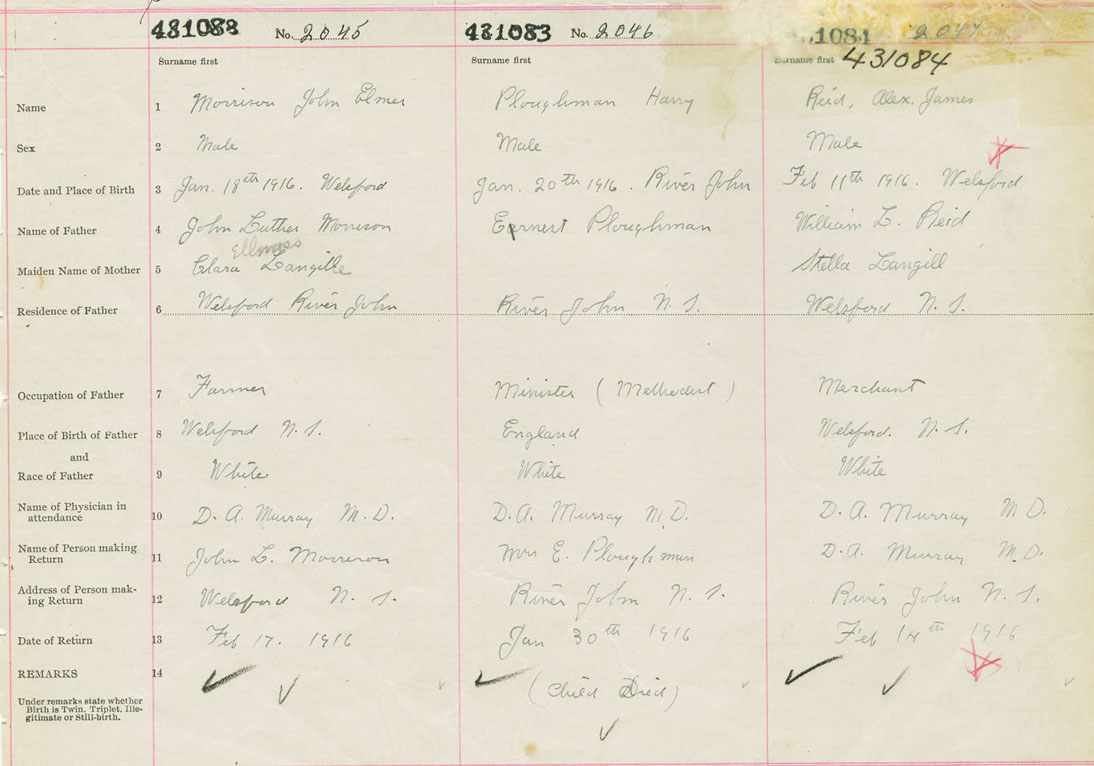 481088 No. 2045 481083 No. 2046 1084 2047
Surname first Surname first Surname first 431084
Name 1 Morrison John Elmer Ploughman Harry Reid, Alex. James
Sex 2 Male Male Male
Date and Place of Birth 3 Jan. 18th 1916. Welsford Jan. 20th 1916. River John Feb 11th 1916. Welsford
Name of Father 4 John Luther Morrison Earnest Ploughman William L. Reid
Maiden Name of Mother 5 Clara Langille Stella Langill
Residence of Father 6 Welsford River John River John N. S. Welsford N. S.
Occupation of Father 7 Farmer Minister (Methodist) Merchant
Place of Birth of Father 8 Welsford N. S. England Welsford. N. S.
and
Race of Father 9 White White White
Name of Physician in
attendance 10 D. A. Murray M. D. D. A. Murray M. D. D. A. Murray M. D.
Name of Person making
Return 11 John L. Morrison Mrs E. Ploughman D. A. Murray M. D.
Address of Person mak-
ing Return 12 Welsford N. S. River John N. S. River John N. S.
Date of Return 13 Feb 17. 1916 Jan 30th 1916 Feb 14th 1916
REMARKS 14
(Child Died)
Under remarks state whether
Birth is Twin, Triplet, Ille-
gitimate or Still-birth.